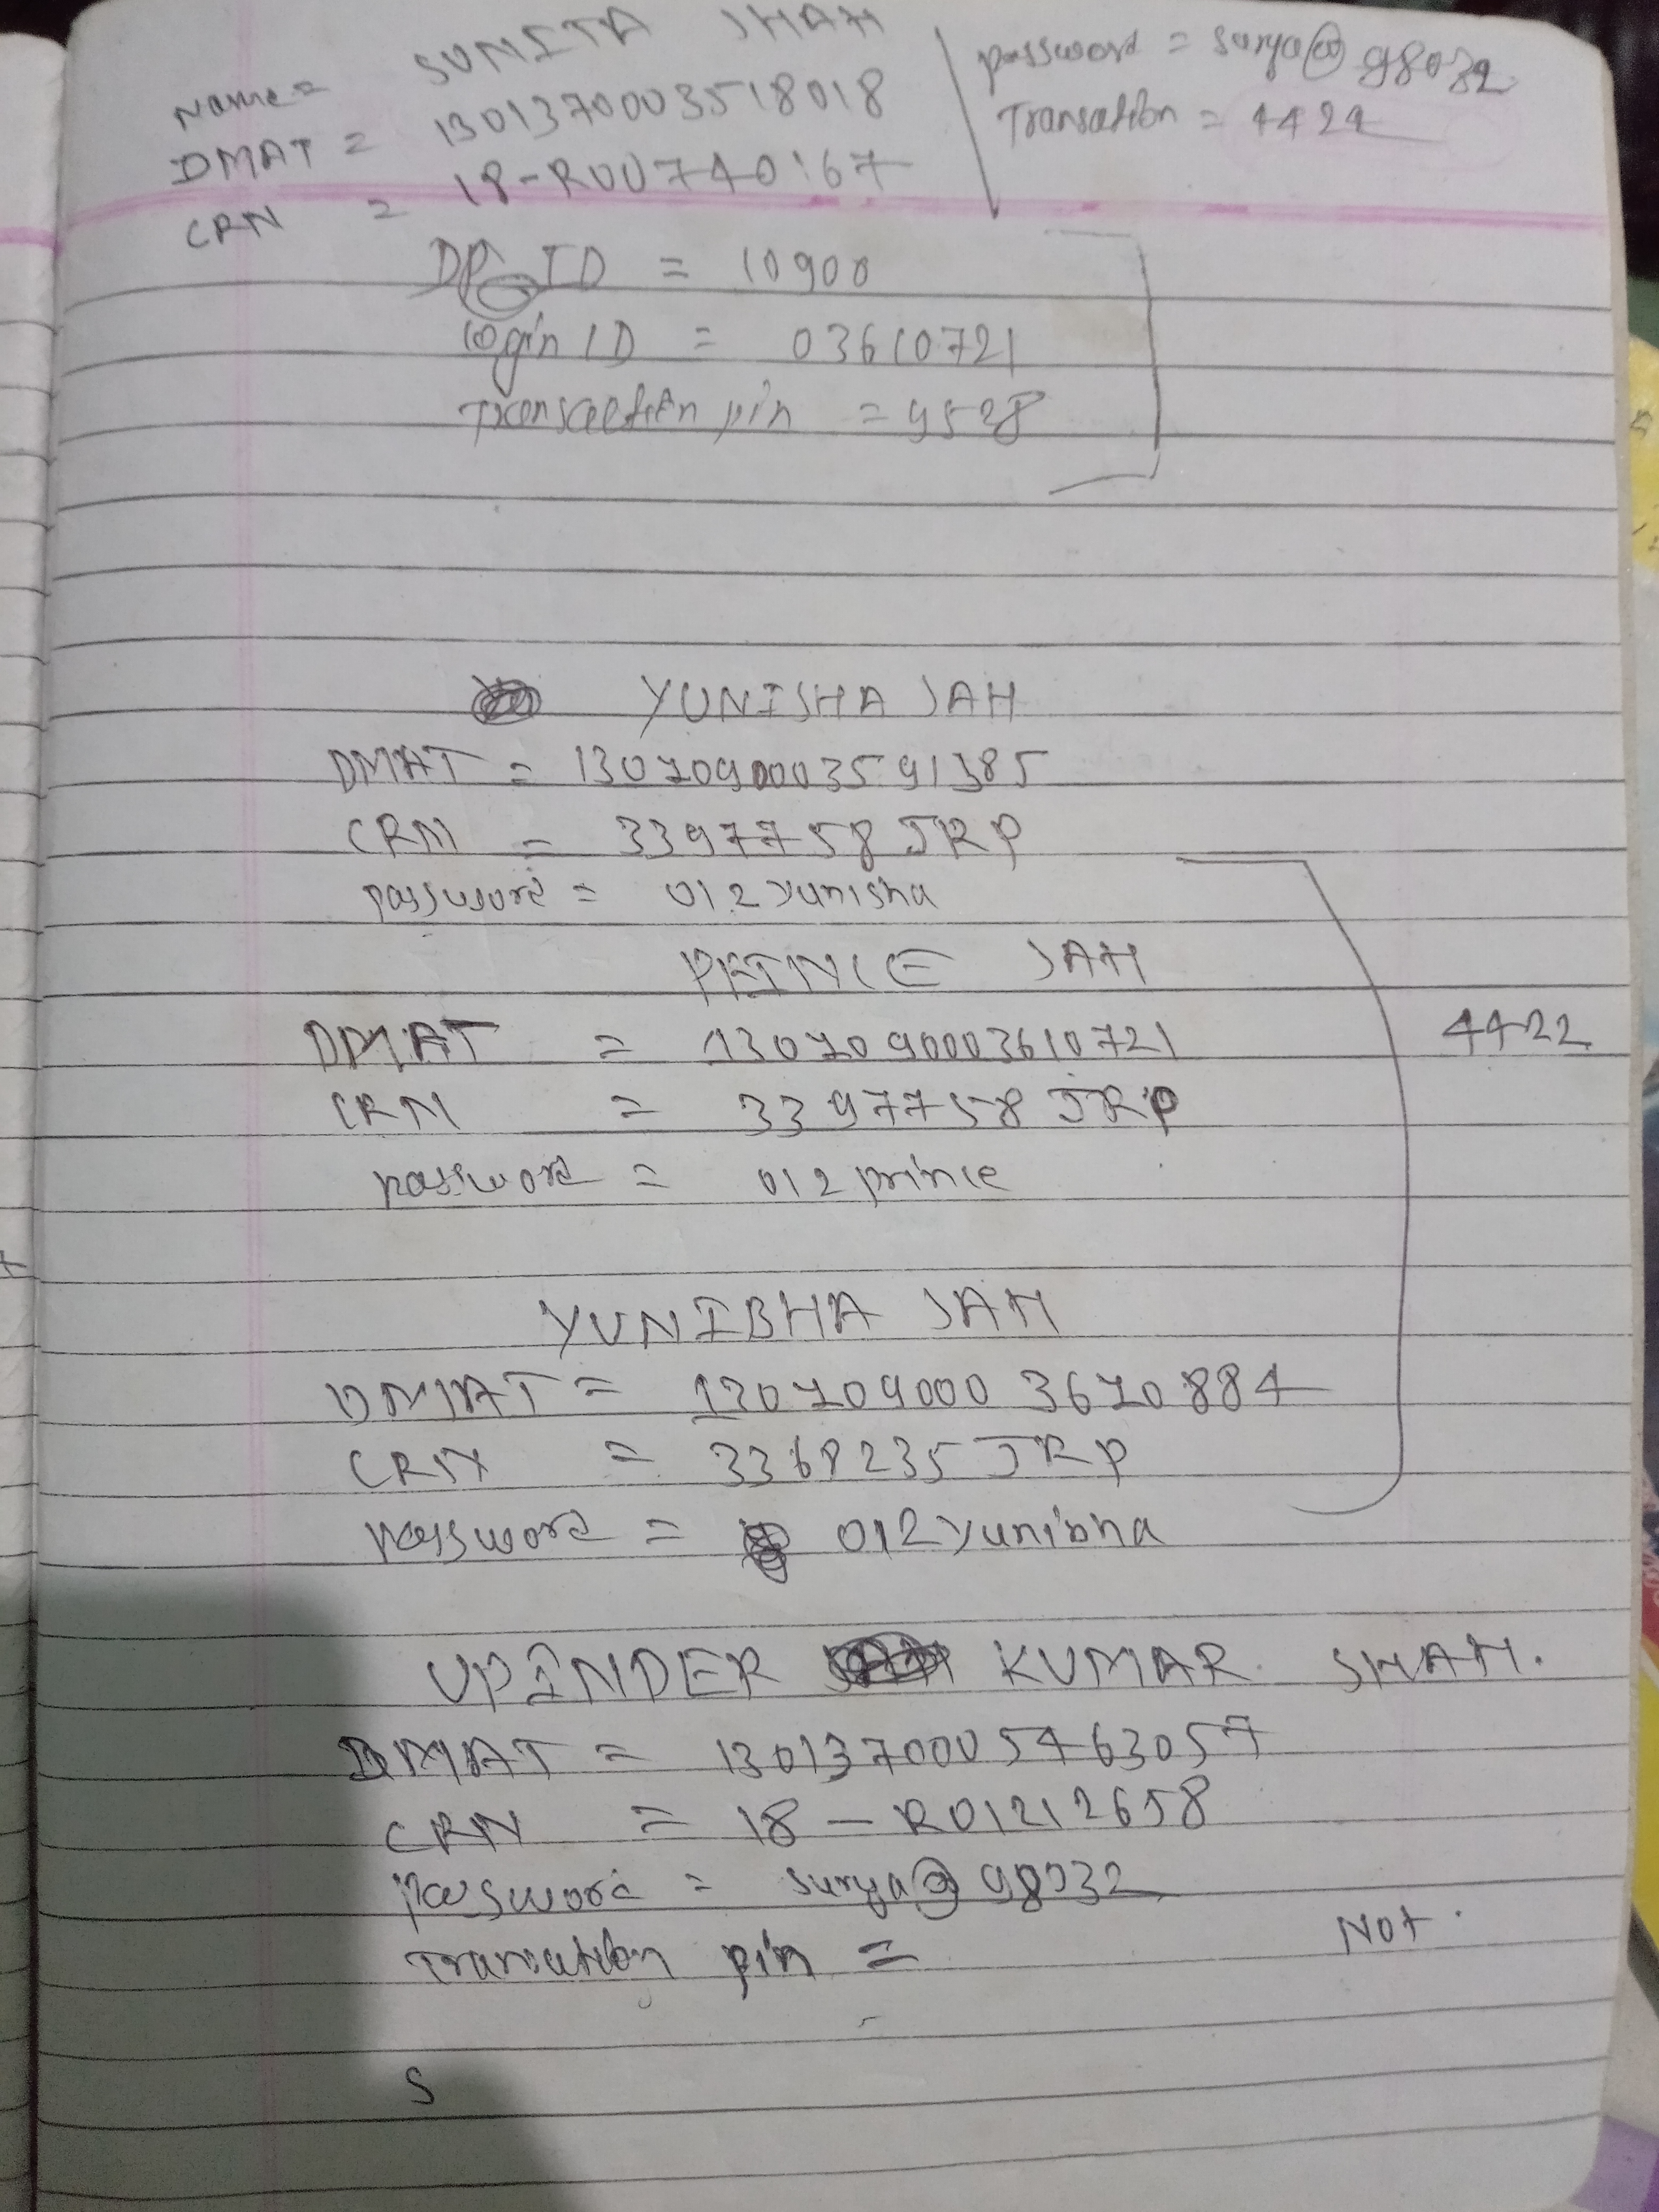 Name = SUNITA SHAH
DMAT = 1301370003518018
CRN = 18-R00740167
password = surya@98032
Transation = 4424
DP ID = 10900
login ID = 03610721
Transaction pin = 9528
YUNISHA SAH
DMAT = 1301090003591385
CRN = 3397758 JRP
password = 012yunisha
PRINCE SAH
DMAT = 1301090003610721
CRN = 3397758 JRP
password = 012prince
4422
YUNIBHA SAH
DMAT = 1301090003610884
CRN = 3368235 JRP
password = 012yunibha
UPINDER KUMAR SHAH.
DMAT = 1301370005463057
CRN = 18-R01212658
password = surya@98032
Transaction pin =
Not.
S